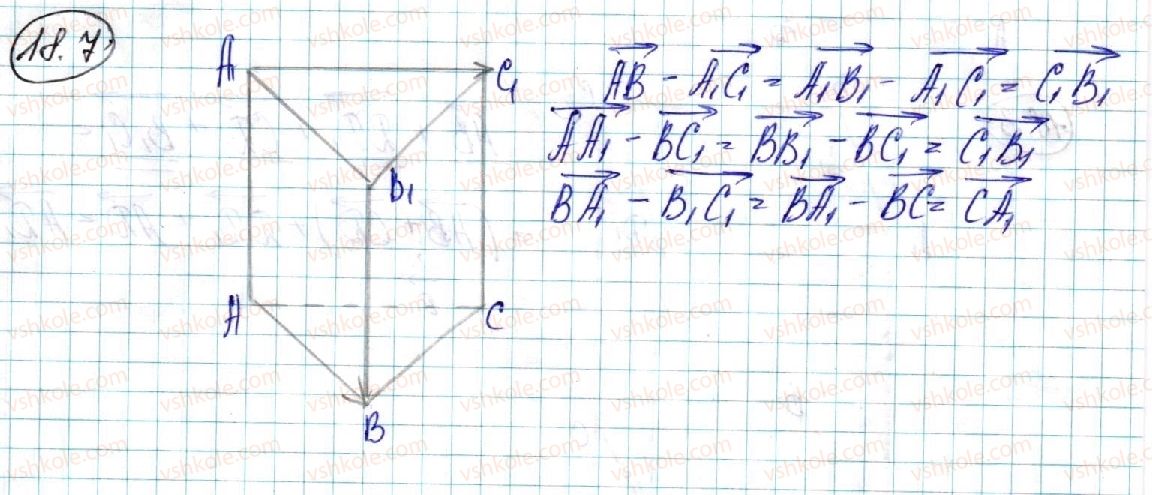 18.7.
A₁ C₁
B₁
A C
B
AB⃗ - A₁C₁⃗ = A₁B₁⃗ - A₁C₁⃗ = C₁B₁⃗
AA₁⃗ - BC₁⃗ = BB₁⃗ - BC₁⃗ = C₁B₁⃗
BA₁⃗ - B₁C₁⃗ = BA₁⃗ - BC⃗ = CA₁⃗
vshkole.com